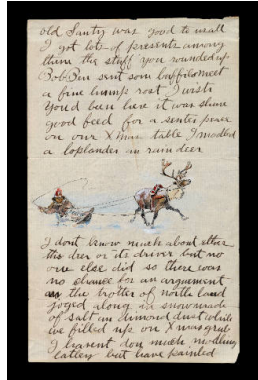 old Santy was good to us all
I got lots of presents among
them the stuff you rounded up
Bob Ben sent som buffilo meet
a fine hump rost I wish
You'd ben here it was shure
good feed for a center peace
on our Xmas table I modled
a loplander an raindeer
I dont know much about ether
this deer or its driver but no
one else did so there was
no chance for an arguement
as the trotter of north land
joged along an snow made
of salt an dimond dust while
we filled up on Xmas grub
I havent don much modling
latley but have painted